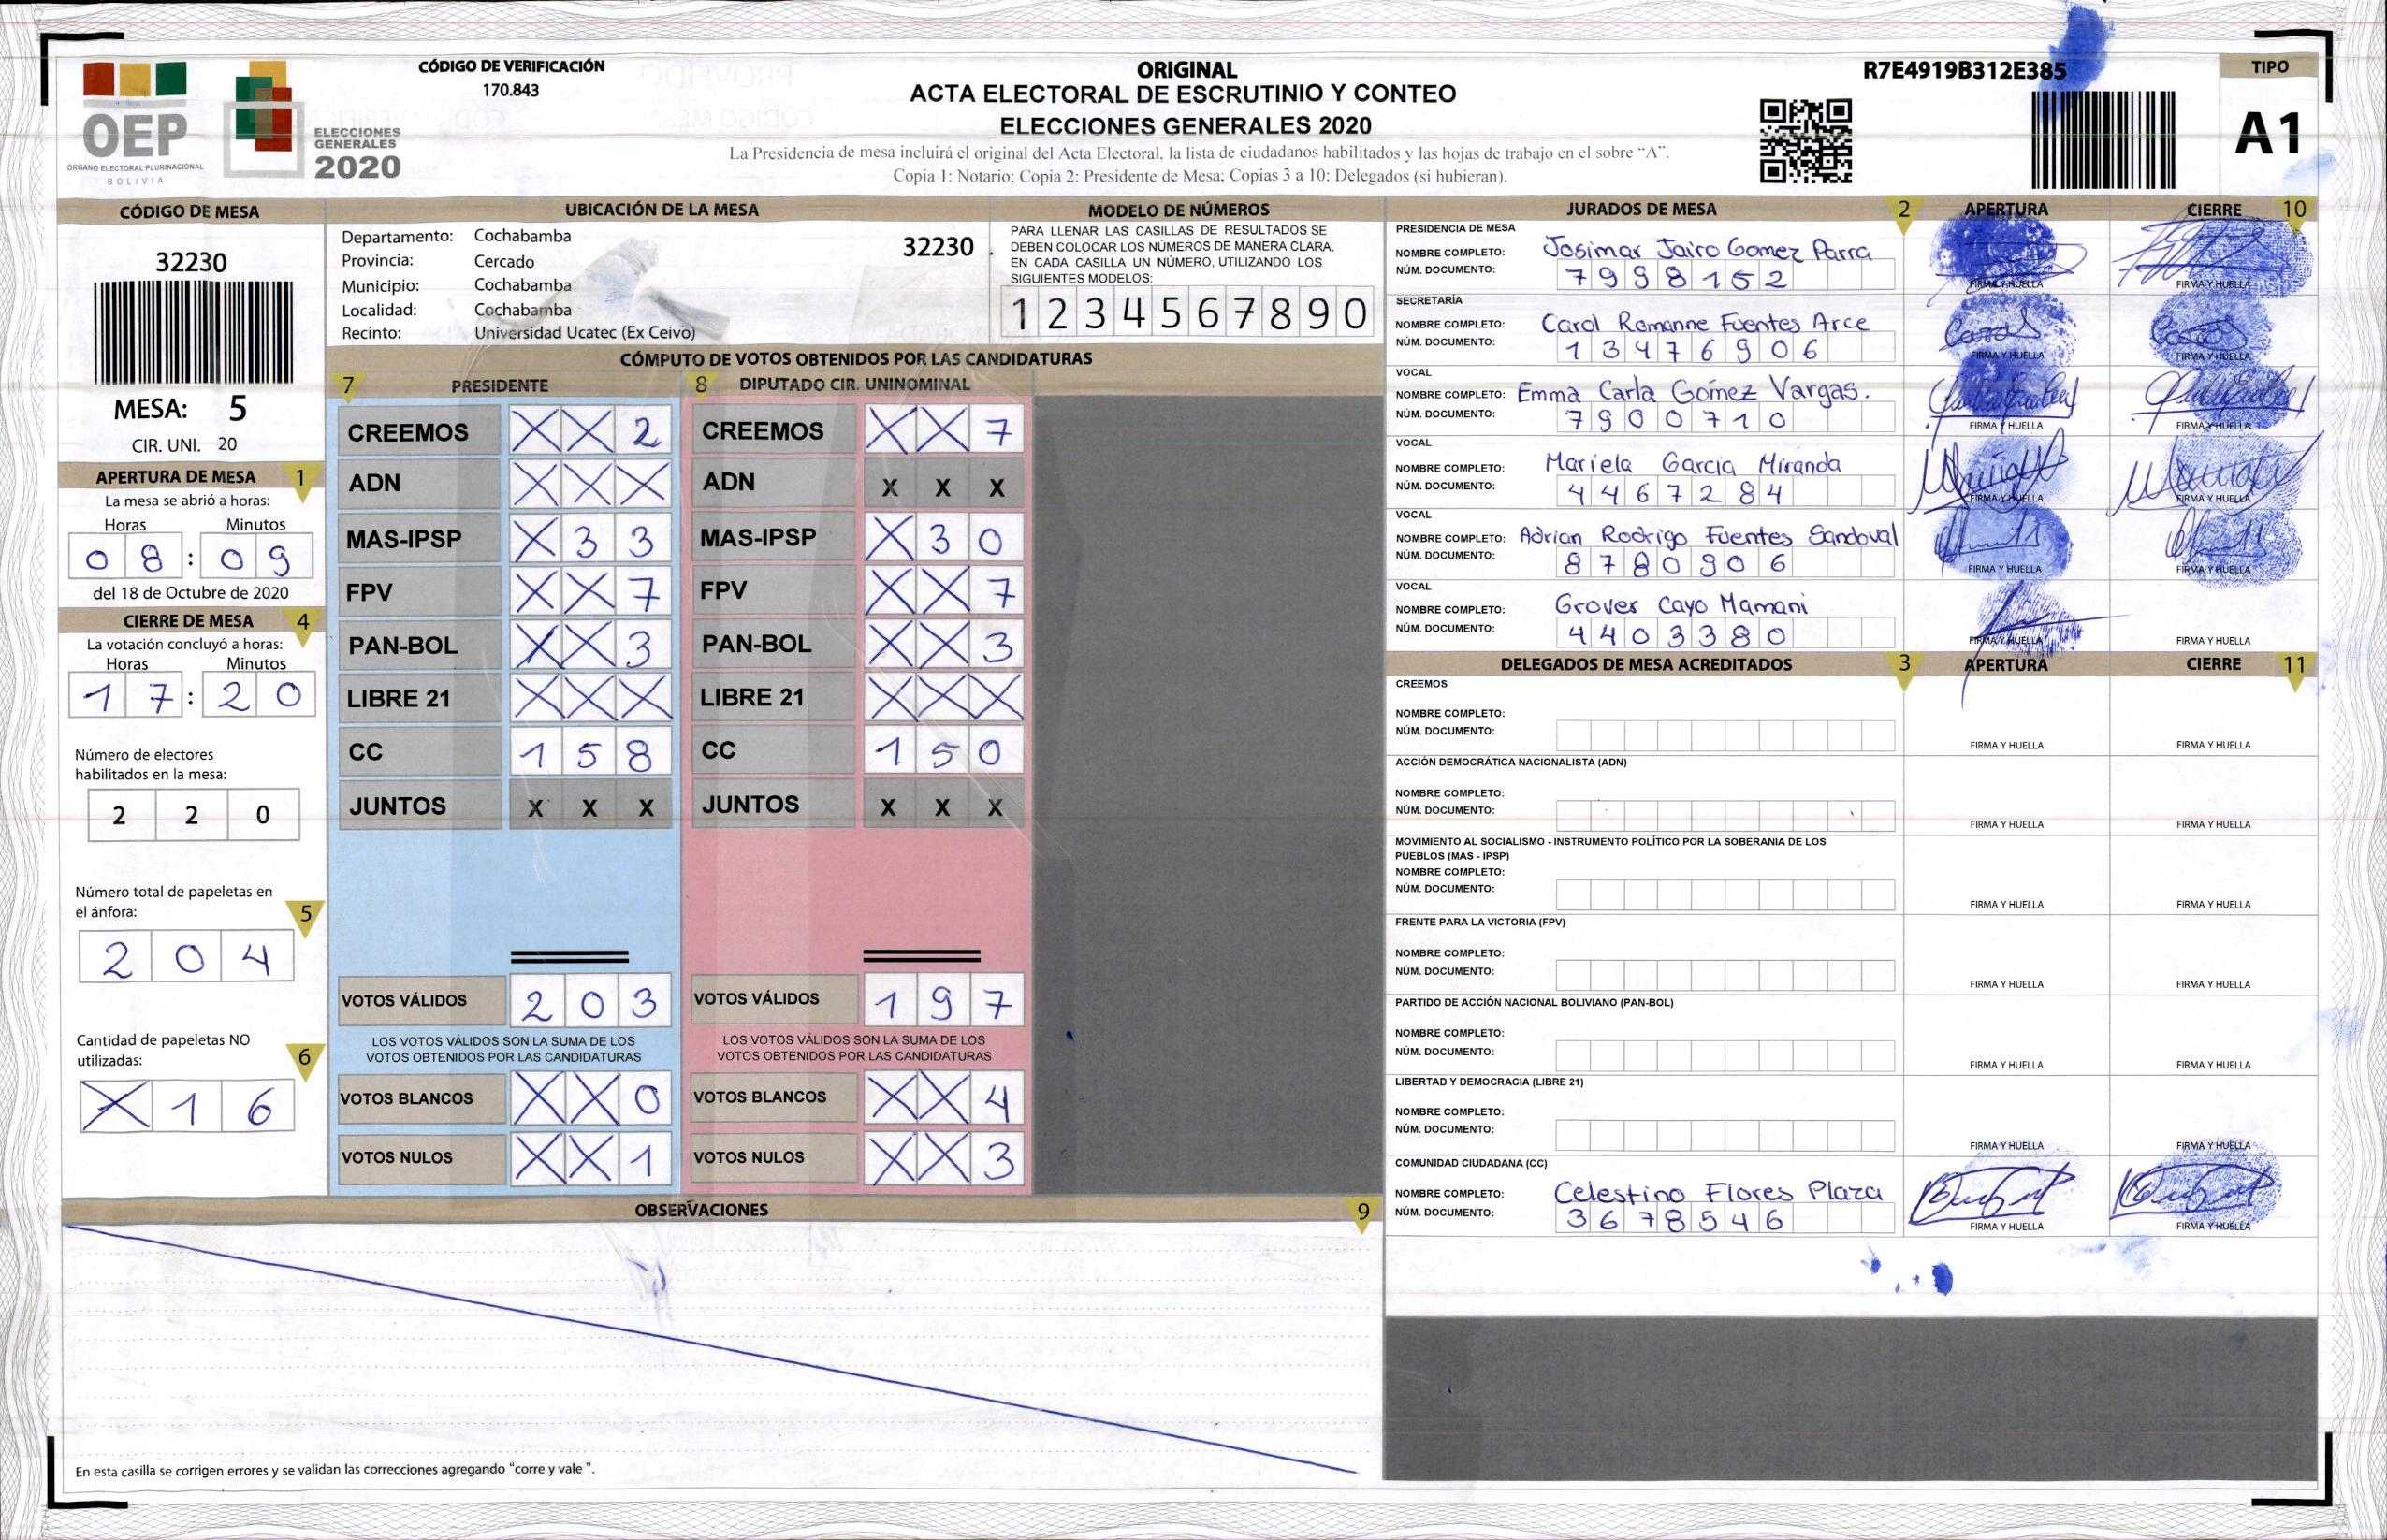 CÓDIGO DE VERIFICACIÓN
170.843
OEP
ÓRGANO ELECTORAL PLURINACIONAL
BOLIVIA
ELECCIONES
GENERALES
2020
ORIGINAL
ACTA ELECTORAL DE ESCRUTINIO Y CONTEO
ELECCIONES GENERALES 2020
La Presidencia de mesa incluirá el original del Acta Electoral, la lista de ciudadanos habilitados y las hojas de trabajo en el sobre “A”.
Copia 1: Notario; Copia 2: Presidente de Mesa; Copias 3 a 10: Delegados (si hubieran).
R7E4919B312E385
TIPO
A1
CÓDIGO DE MESA
32230
MESA: 5
CIR. UNI. 20
APERTURA DE MESA 1
La mesa se abrió a horas:
Horas Minutos
08:09
del 18 de Octubre de 2020
CIERRE DE MESA 4
La votación concluyó a horas:
Horas Minutos
17:20
Número de electores
habilitados en la mesa:
2 2 0
Número total de papeletas en
el ánfora:
5
2 0 4
Cantidad de papeletas NO
utilizadas:
6
X 1 6
UBICACIÓN DE LA MESA
Departamento: Cochabamba
32230
Provincia: Cercado
Municipio: Cochabamba
Localidad: Cochabamba
Recinto: Universidad Ucatec (Ex Ceivo)
MODELO DE NÚMEROS
PARA LLENAR LAS CASILLAS DE RESULTADOS SE
DEBEN COLOCAR LOS NÚMEROS DE MANERA CLARA.
EN CADA CASILLA UN NÚMERO, UTILIZANDO LOS
SIGUIENTES MODELOS:
1 2 3 4 5 6 7 8 9 0
CÓMPUTO DE VOTOS OBTENIDOS POR LAS CANDIDATURAS
7 PRESIDENTE
CREEMOS X X 2
ADN X X X
MAS-IPSP X 3 3
FPV X X 7
PAN-BOL X X 3
LIBRE 21 X X X
CC 1 5 8
JUNTOS X X X
VOTOS VÁLIDOS 2 0 3
LOS VOTOS VÁLIDOS SON LA SUMA DE LOS
VOTOS OBTENIDOS POR LAS CANDIDATURAS
VOTOS BLANCOS X X 0
VOTOS NULOS X X 1
8 DIPUTADO CIR. UNINOMINAL
CREEMOS X X 7
ADN X X X
MAS-IPSP X 3 0
FPV X X 7
PAN-BOL X X 3
LIBRE 21 X X X
CC 1 5 0
JUNTOS X X X
VOTOS VÁLIDOS 1 9 7
LOS VOTOS VÁLIDOS SON LA SUMA DE LOS
VOTOS OBTENIDOS POR LAS CANDIDATURAS
VOTOS BLANCOS X X 4
VOTOS NULOS X X 3
OBSERVACIONES 9
En esta casilla se corrigen errores y se validan las correcciones agregando “corre y vale”.
JURADOS DE MESA 2 APERTURA CIERRE 10
PRESIDENCIA DE MESA
NOMBRE COMPLETO: Josimar Jairo Gomez Parra
NÚM. DOCUMENTO: 7998152
FIRMA Y HUELLA FIRMA Y HUELLA
SECRETARÍA
NOMBRE COMPLETO: Carol Romanne Fuentes Arce
NÚM. DOCUMENTO: 13476906
FIRMA Y HUELLA FIRMA Y HUELLA
VOCAL
NOMBRE COMPLETO: Emma Carla Gómez Vargas.
NÚM. DOCUMENTO: 7900710
FIRMA Y HUELLA FIRMA Y HUELLA
VOCAL
NOMBRE COMPLETO: Mariela Garcia Miranda
NÚM. DOCUMENTO: 4467284
FIRMA Y HUELLA FIRMA Y HUELLA
VOCAL
NOMBRE COMPLETO: Adrian Rodrigo Fuentes Sandoval
NÚM. DOCUMENTO: 8780906
FIRMA Y HUELLA FIRMA Y HUELLA
VOCAL
NOMBRE COMPLETO: Grover Cayo Mamani
NÚM. DOCUMENTO: 4403380
FIRMA Y HUELLA FIRMA Y HUELLA
DELEGADOS DE MESA ACREDITADOS 3 APERTURA CIERRE 11
CREEMOS
NOMBRE COMPLETO:
NÚM. DOCUMENTO:
FIRMA Y HUELLA FIRMA Y HUELLA
ACCIÓN DEMOCRÁTICA NACIONALISTA (ADN)
NOMBRE COMPLETO:
NÚM. DOCUMENTO:
FIRMA Y HUELLA FIRMA Y HUELLA
MOVIMIENTO AL SOCIALISMO - INSTRUMENTO POLÍTICO POR LA SOBERANIA DE LOS
PUEBLOS (MAS - IPSP)
NOMBRE COMPLETO:
NÚM. DOCUMENTO:
FIRMA Y HUELLA FIRMA Y HUELLA
FRENTE PARA LA VICTORIA (FPV)
NOMBRE COMPLETO:
NÚM. DOCUMENTO:
FIRMA Y HUELLA FIRMA Y HUELLA
PARTIDO DE ACCIÓN NACIONAL BOLIVIANO (PAN-BOL)
NOMBRE COMPLETO:
NÚM. DOCUMENTO:
FIRMA Y HUELLA FIRMA Y HUELLA
LIBERTAD Y DEMOCRACIA (LIBRE 21)
NOMBRE COMPLETO:
NÚM. DOCUMENTO:
FIRMA Y HUELLA FIRMA Y HUELLA
COMUNIDAD CIUDADANA (CC)
NOMBRE COMPLETO: Celestino Flores Plaza
NÚM. DOCUMENTO: 3678546
FIRMA Y HUELLA FIRMA Y HUELLA